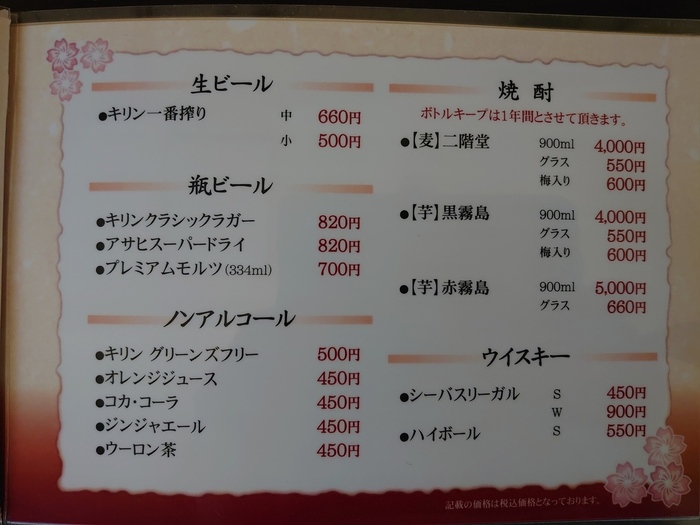 生ビール
●キリン一番搾り 中 660円
小 500円
瓶ビール
●キリンクラシックラガー 820円
●アサヒスーパードライ 820円
●プレミアムモルツ(334ml) 700円
ノンアルコール
●キリン グリーンズフリー 500円
●オレンジジュース 450円
●コカ・コーラ 450円
●ジンジャエール 450円
●ウーロン茶 450円
焼酎
ボトルキープは1年間とさせて頂きます。
●【麦】二階堂 900ml 4,000円
グラス 550円
梅入り 600円
●【芋】黒霧島 900ml 4,000円
グラス 550円
梅入り 600円
●【芋】赤霧島 900ml 5,000円
グラス 660円
ウイスキー
●シーバスリーガル S 450円
W 900円
●ハイボール S 550円
記載の価格は税込価格となっております。